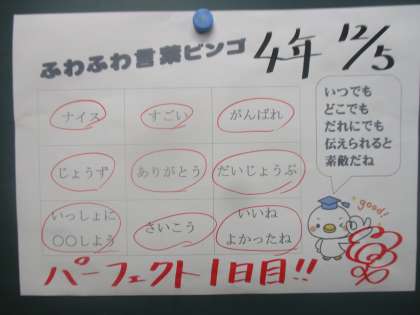 ふわふわ言葉ビンゴ
4年 12/5
ナイス すごい がんばれ
じょうず ありがとう だいじょうぶ
いっしょに
○○しよう
さいこう
いいね
よかったね
いつでも
どこでも
だれにでも
伝えられると
素敵だね
good!
パーフェクト1日目!!